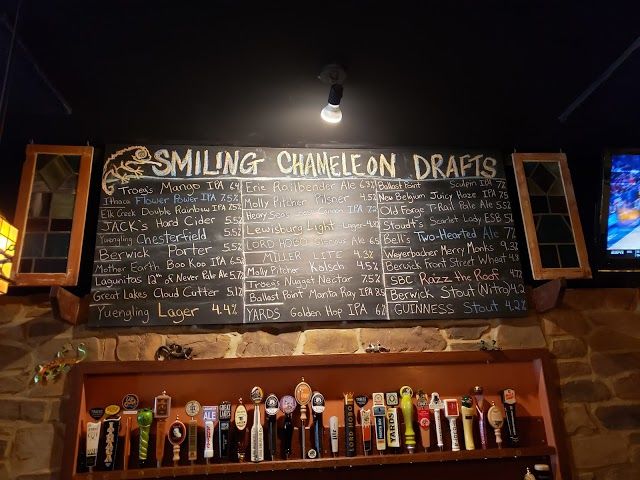 SMILING CHAMELEON DRAFTS
Troegs Mango IPA
Ithaca Flower Power IPA 7.5%
Elk Creek Double Rainbow IPA
JACK'S Hard Cider 5.5%
Yuengling Chesterfield 5.5%
Berwick Porter 5.5%
Mother Earth Boo Koo IPA
Lagunitas 12th of Never Pale Ale
Great Lakes Cloud Cutter 5.1%
Yuengling Lager 4.4%
Erie Railbender Ale 6.3%
Molly Pitcher Pilsner 4.5%
Heavy Seas IPA
Lewisburg Light Lager
LORD HOBO
MILLER LITE 4.3%
Molly Pitcher Kolsch 4.5%
Troegs Nugget Nectar 7.5%
Ballast Point Manta Ray IPA
YARDS Golden Hop IPA
Ballast Point Sculpin IPA
New Belgium Juicy Haze IPA
Old Forge T-Rail Pale Ale
Stoudt's Scarlet Lady ESB
Bell's Two-Hearted Ale
Weyerbacher Merry Monks
Berwick Front Street Wheat
SBC Razz the Roof
Berwick Stout (Nitro) 4.2
GUINNESS Stout 4.2